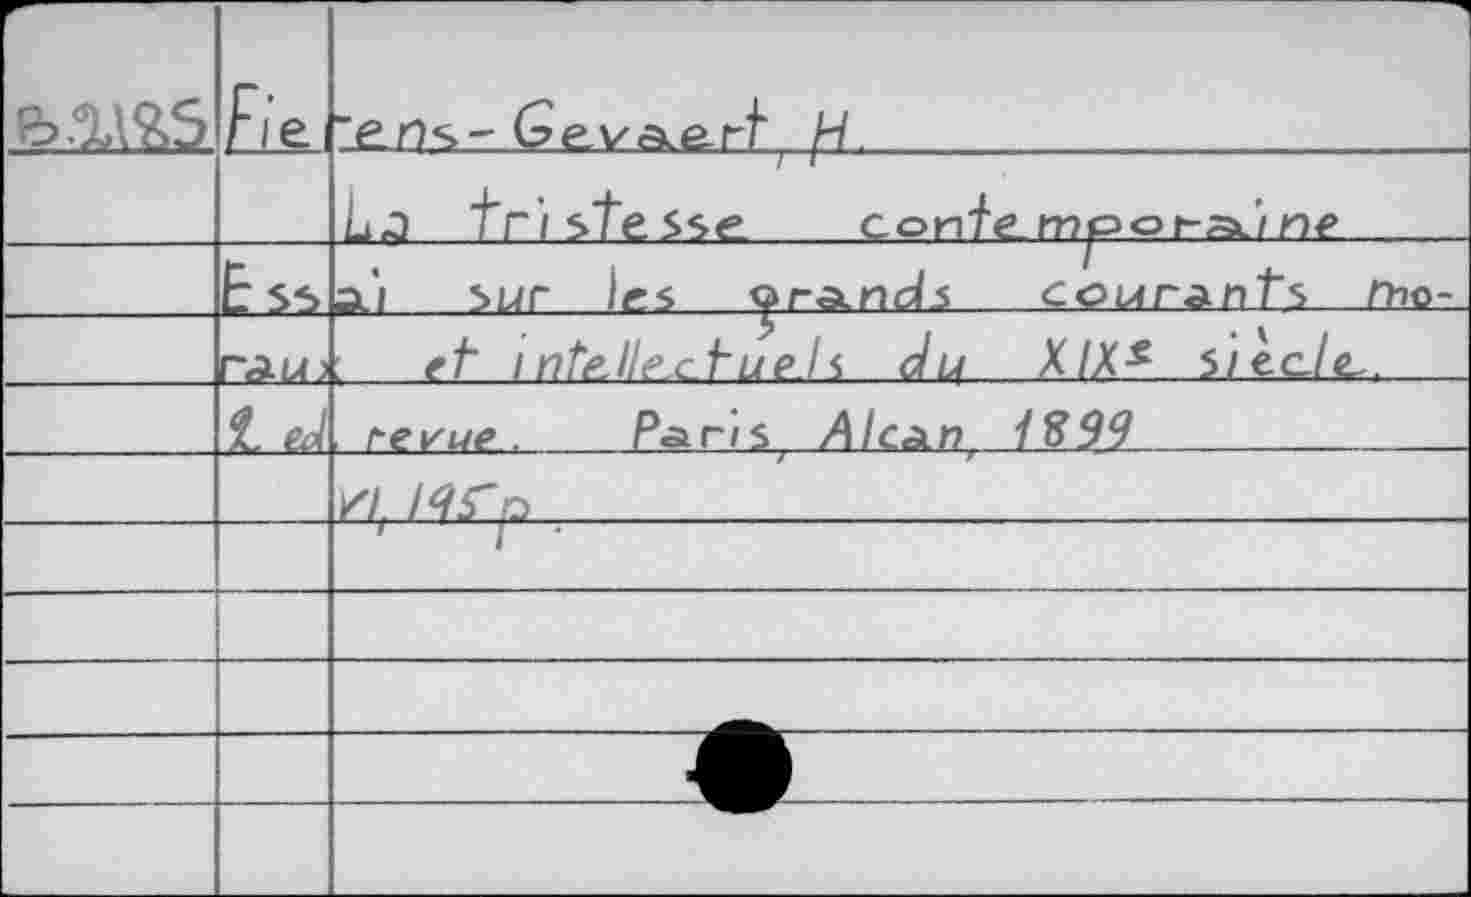 B.2185 Fierens-Gevaert, H.
La tristesse contemporaine
Essai sur les grands courants mo-
raux et intellectuels du XIXe siècle.
2. ed. revue. Paris, Alcan, 1899
VI, 195 p.